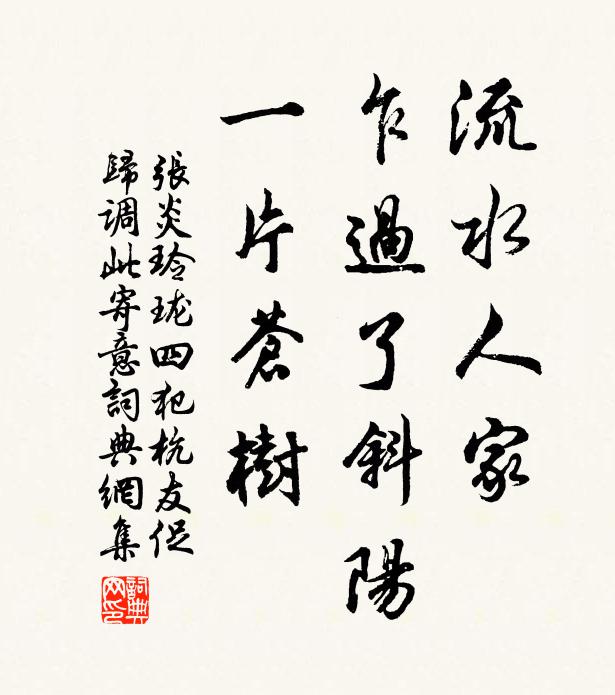 流水人家
乍過了斜陽
一片蒼樹
張炎玲瓏四犯杭友促
歸調此寄意詞典網集
詞典网印